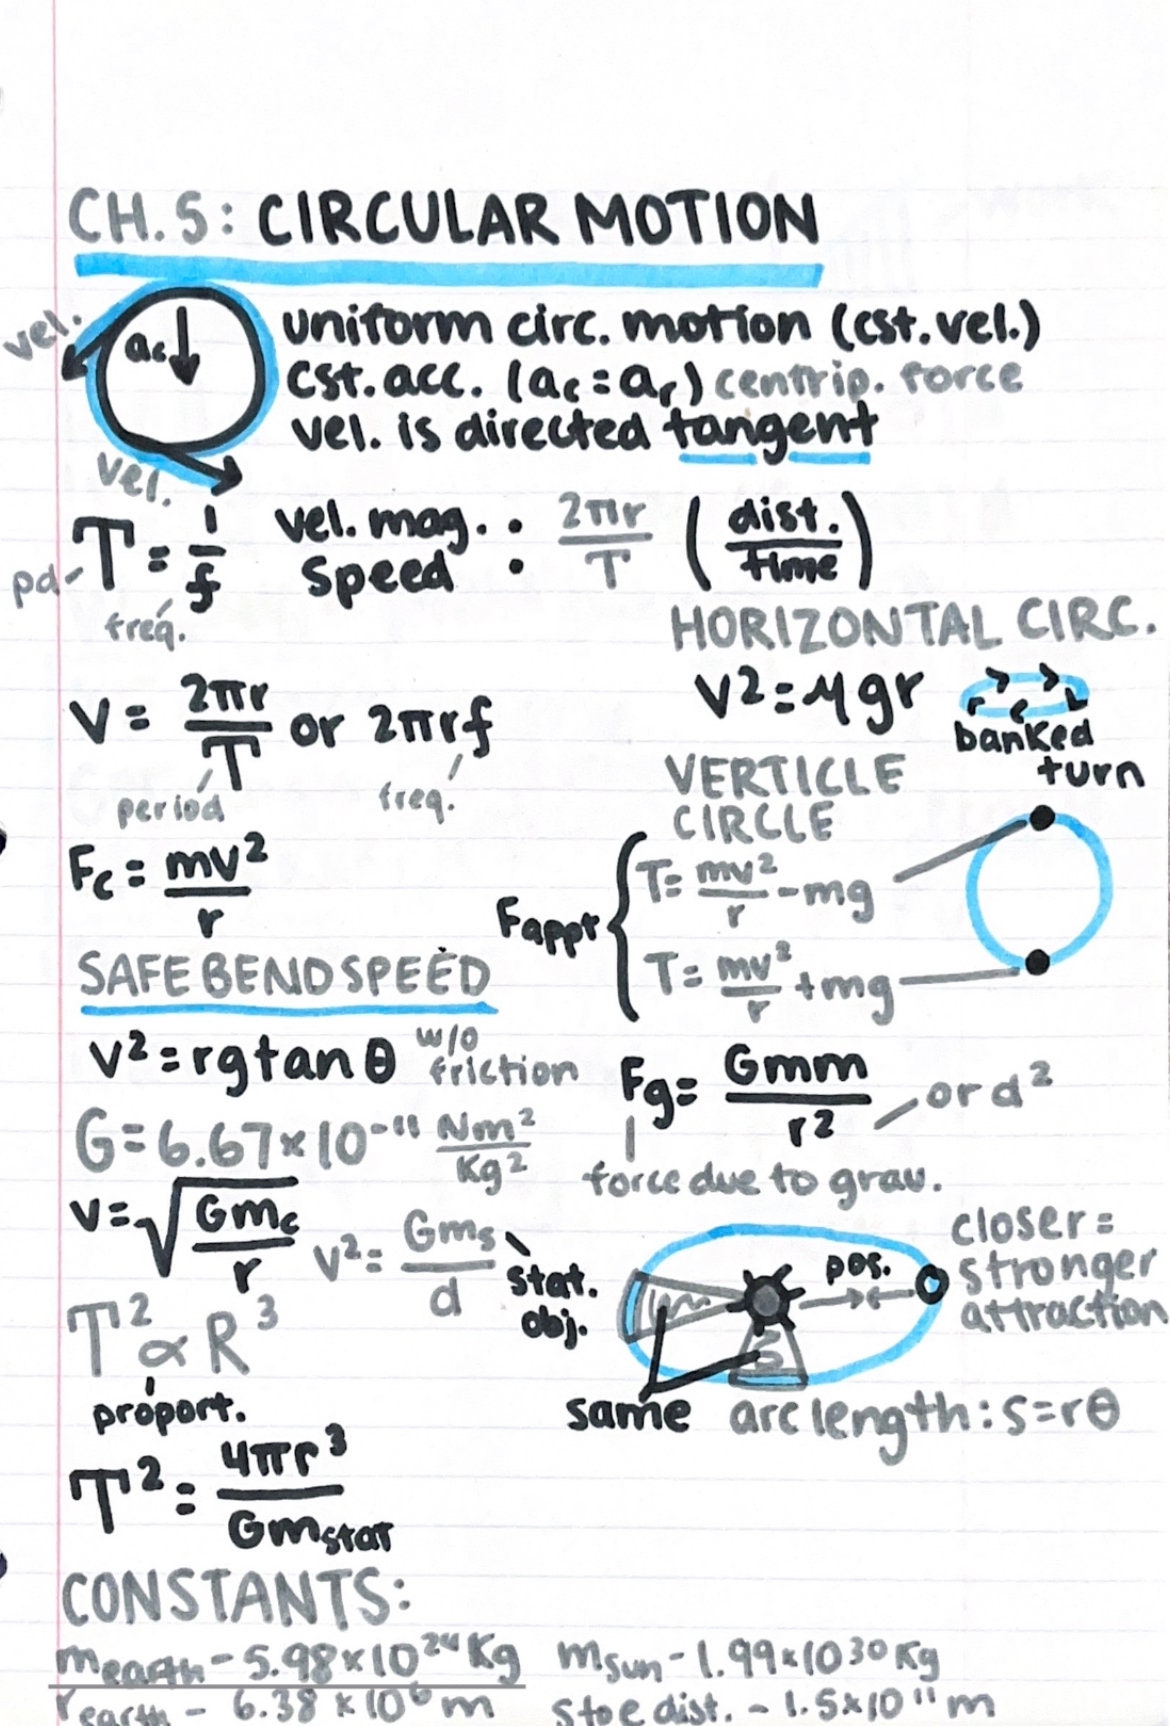 CH. 5: CIRCULAR MOTION
vel.
ac
uniform circ. motion (cst. vel.)
cst. acc. (ac = ar) centrip. force
vel. is directed tangent
vel.
T = 1/f
pd
freq.
vel. mag. : 2πr/T (dist./time)
speed :
HORIZONTAL CIRC.
v² = μgr
banked
turn
v = 2πr/T or 2πrf
period
freq.
VERTICLE
CIRCLE
Fc = mv²/r
Fappt { T = mv²/r - mg
T = mv²/r + mg
SAFE BEND SPEED
v² = rg tan θ w/o friction
Fg = Gmm/r² or d²
force due to grav.
G = 6.67 × 10⁻¹¹ Nm²/Kg²
v = √Gmc/r
v² = Gms/d
stat.
obj.
pos.
closer =
stronger
attraction
same
arc length: s = rθ
T² ∝ R³
proport.
T² = 4πr³/Gmstat
CONSTANTS:
mearth - 5.98 × 10²⁴ Kg
msun - 1.99 × 10³⁰ Kg
rearth - 6.38 × 10⁶ m
s to e dist. - 1.5 × 10¹¹ m